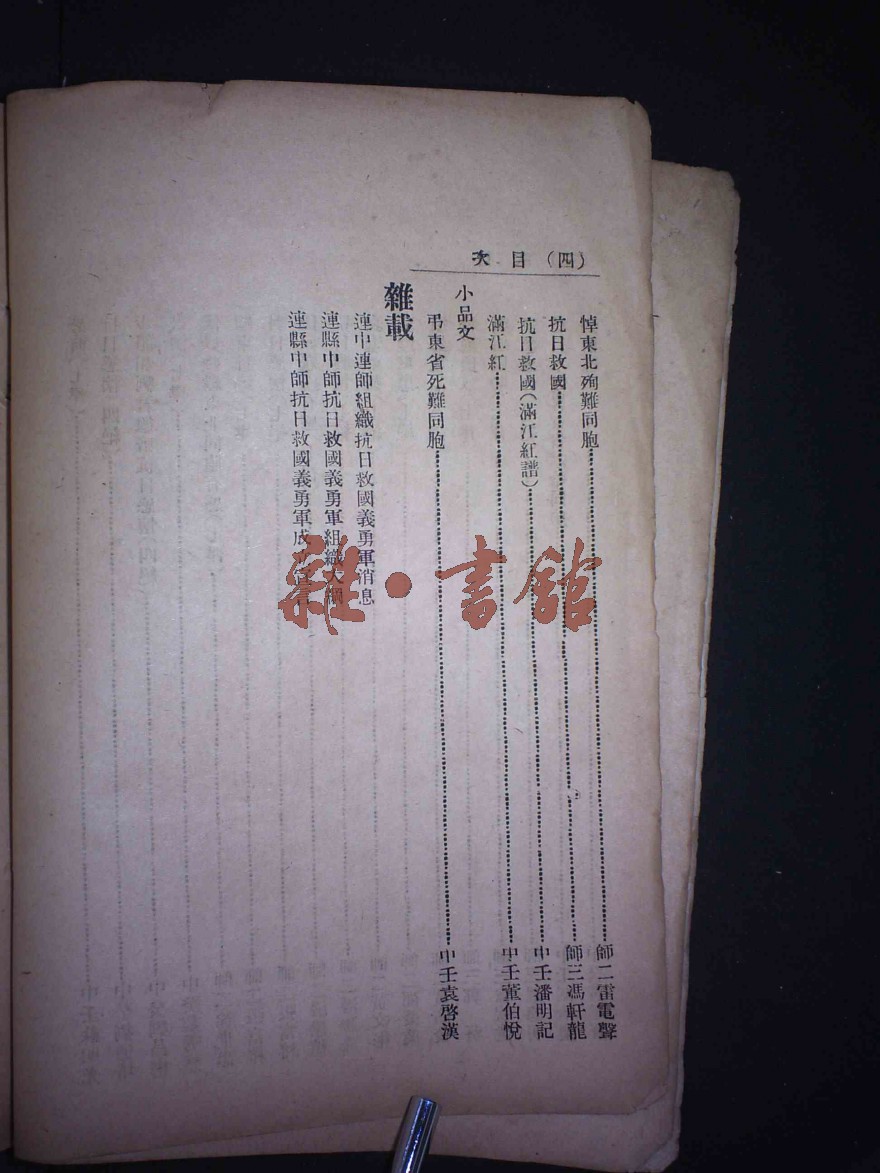 次目(四)
悼東北殉難同胞……師二雷電聲
抗日救國……師三馮軒龍
抗日救國(滿江紅譜)……中壬潘明記
滿江紅……中壬董伯悅
小品文
弔東省死難同胞……中壬袁啓漢
雜載
連中連師組織抗日救國義勇軍消息
連縣中師抗日救國義勇軍組織大綱
連縣中師抗日救國義勇軍成立宣言
雜·書館